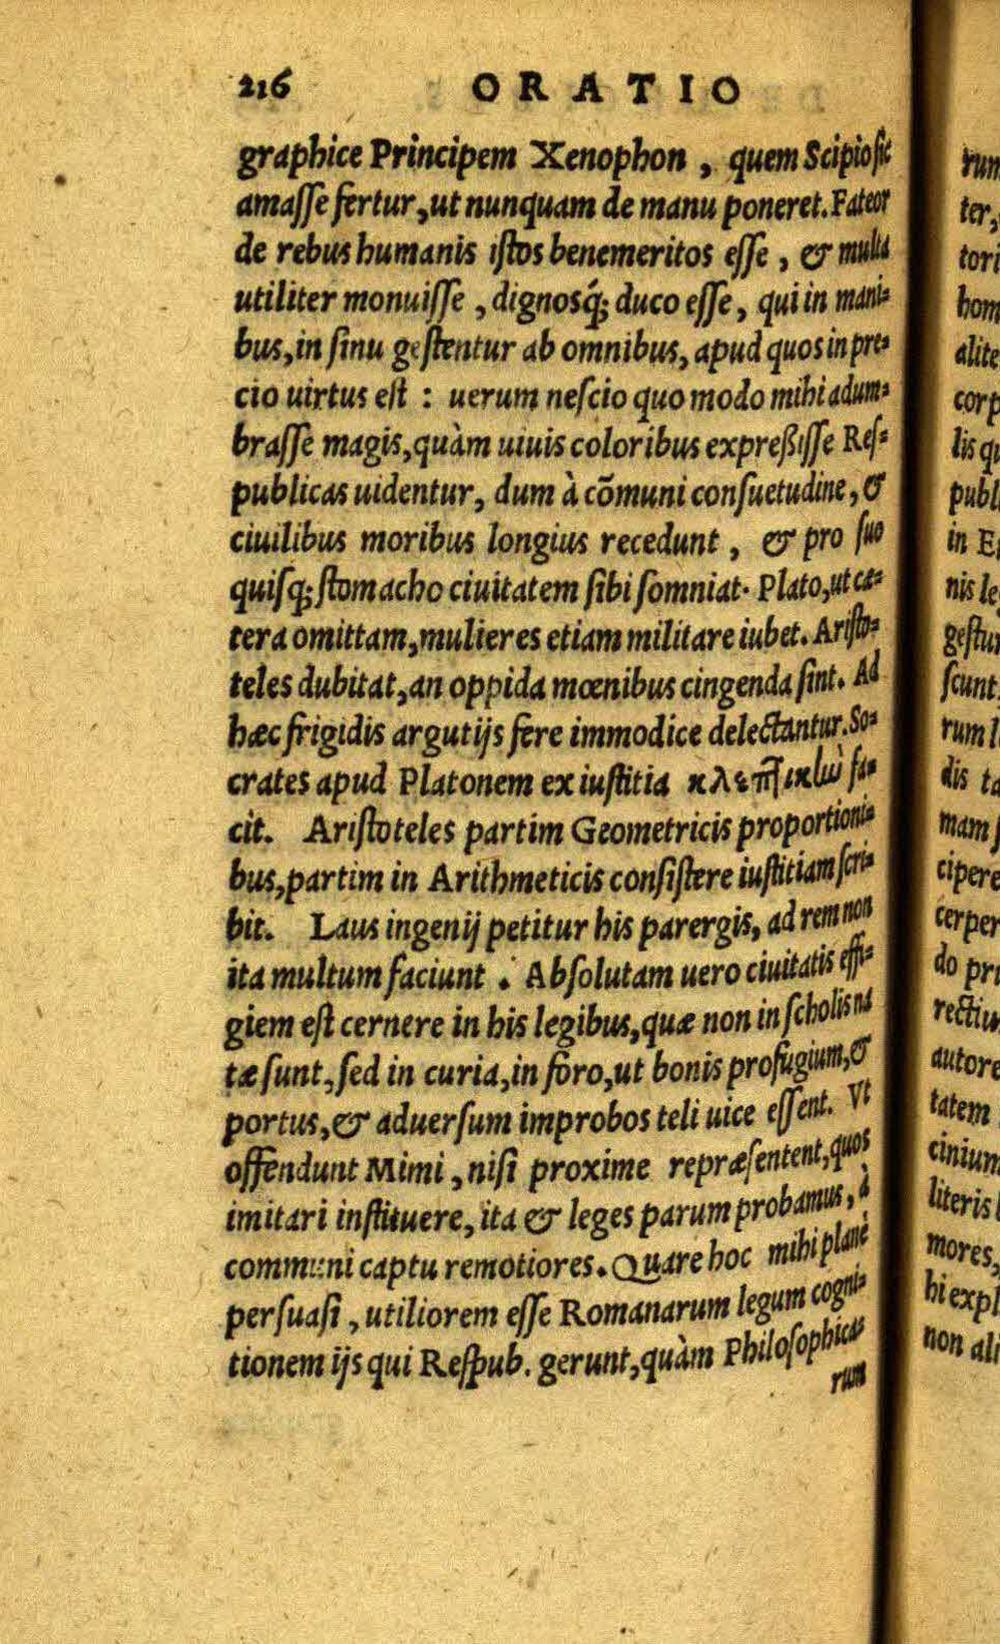 216 ORATIO
graphice Principem Xenophon, quem Scipio sic
amasse fertur, ut nunquam de manu poneret. Fateor
de rebus humanis istos benemeritos esse, & multa
utiliter monuisse, dignosq́; duco esse, qui in mani=
bus, in sinu gestentur ab omnibus, apud quos in pre=
cio uirtus est: uerum nescio quo modo mihi adum=
brasse magis, quàm uiuis coloribus expreßisse Res=
publicas uidentur, dum à cõmuni consuetudine, &
ciuilibus moribus longius recedunt, & pro suo
quisq; stomacho ciuitatem sibi somniat. Plato, ut cæ=
tera omittam, mulieres etiam militare iubet. Aristo=
teles dubitat, an oppida mœnibus cingenda sint. Ad
hæc frigidis argutijs fere immodice delectantur. So=
crates apud Platonem ex iustitia κλεπτικὴν fa=
cit. Aristoteles partim Geometricis proportioni=
bus, partim in Arithmeticis consistere iustitiam scri=
bit. Laus ingenij petitur his parergis, ad rem non
ita multum faciunt. Absolutam uero ciuitatis effi=
giem est cernere in his legibus, quæ non in scholis na
tæ sunt, sed in curia, in foro, ut bonis profugium, &
portus, & aduersum improbos teli uice essent. Vt
offendunt Mimi, nisi proxime repræsentent, quos
imitari instituere, ita & leges parum probamus, à
communi captu remotiores. Quare hoc mihi planè
persuasi, utiliorem esse Romanarum legum cogni=
tionem ijs qui Respub. gerunt, quàm Philosophica=
rum
run
ter,
tori
hom
alite
corp
lis qu
publ
in E
nis le
gestu
scunt
rum l
dis ta
mam
cipere
cerper
do pri
rectiu
autore
tatem
cinium
literis
mores,
hi expl
non ali